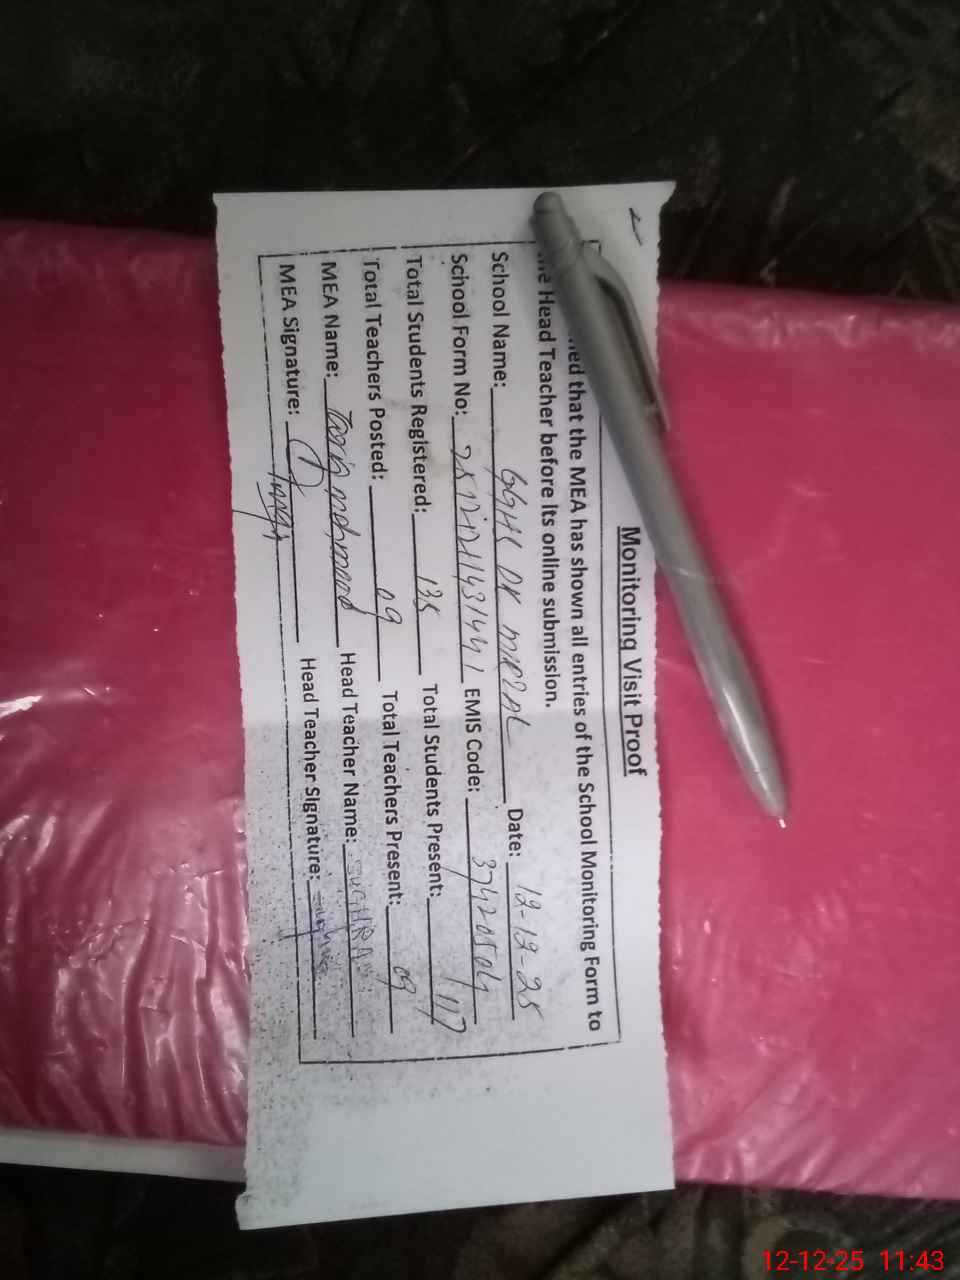 Monitoring Visit Proof
that the MEA has shown all entries of the School Monitoring Form to
Head Teacher before its online submission.
School Name: GGHS DK Date: 12-12-25
School Form No: EMIS Code: 37420504
Total Students Registered: 135 Total Students Present: 117
Total Teachers Posted: 09 Total Teachers Present: 09
MEA Name: Head Teacher Name: SUGHRA
MEA Signature: Head Teacher Signature:
12-12-25 11:43